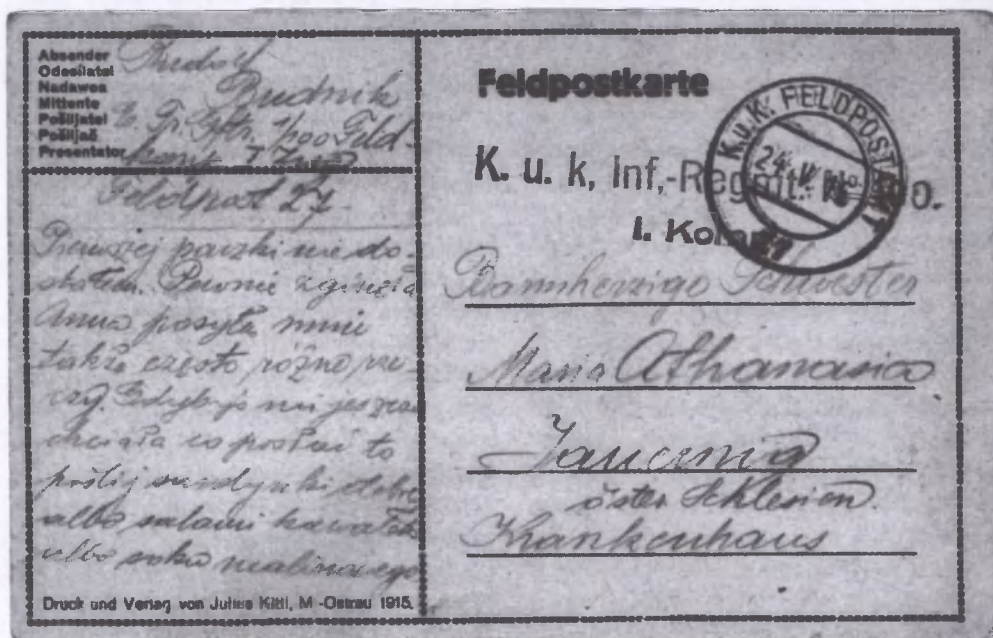 Absender
Odesílatel
Nadawca
Mittente
Pošiljatel
Pošiljač
Presentator
Rudolf
Budnik
Feldpost 27.
Pierwszej paczki nie do-
stałem. Pewnie zginęła
Anna posyła mnie
także często różne rze-
czy. Gdybyś mi jeszcze
chciała co posłać to
poślij sardynki dobre
albo salami kawałek
albo soku malinowego
Druck und Verlag von Julius Kittl, M.-Ostrau 1915.
Feldpostkarte
K. u. K. FELDPOSTAMT
K. u. k. Inf.-Regmt.
Barmherzige Schwester
Maria Athanasia
Jauernig
öster Schlesien.
Krankenhaus